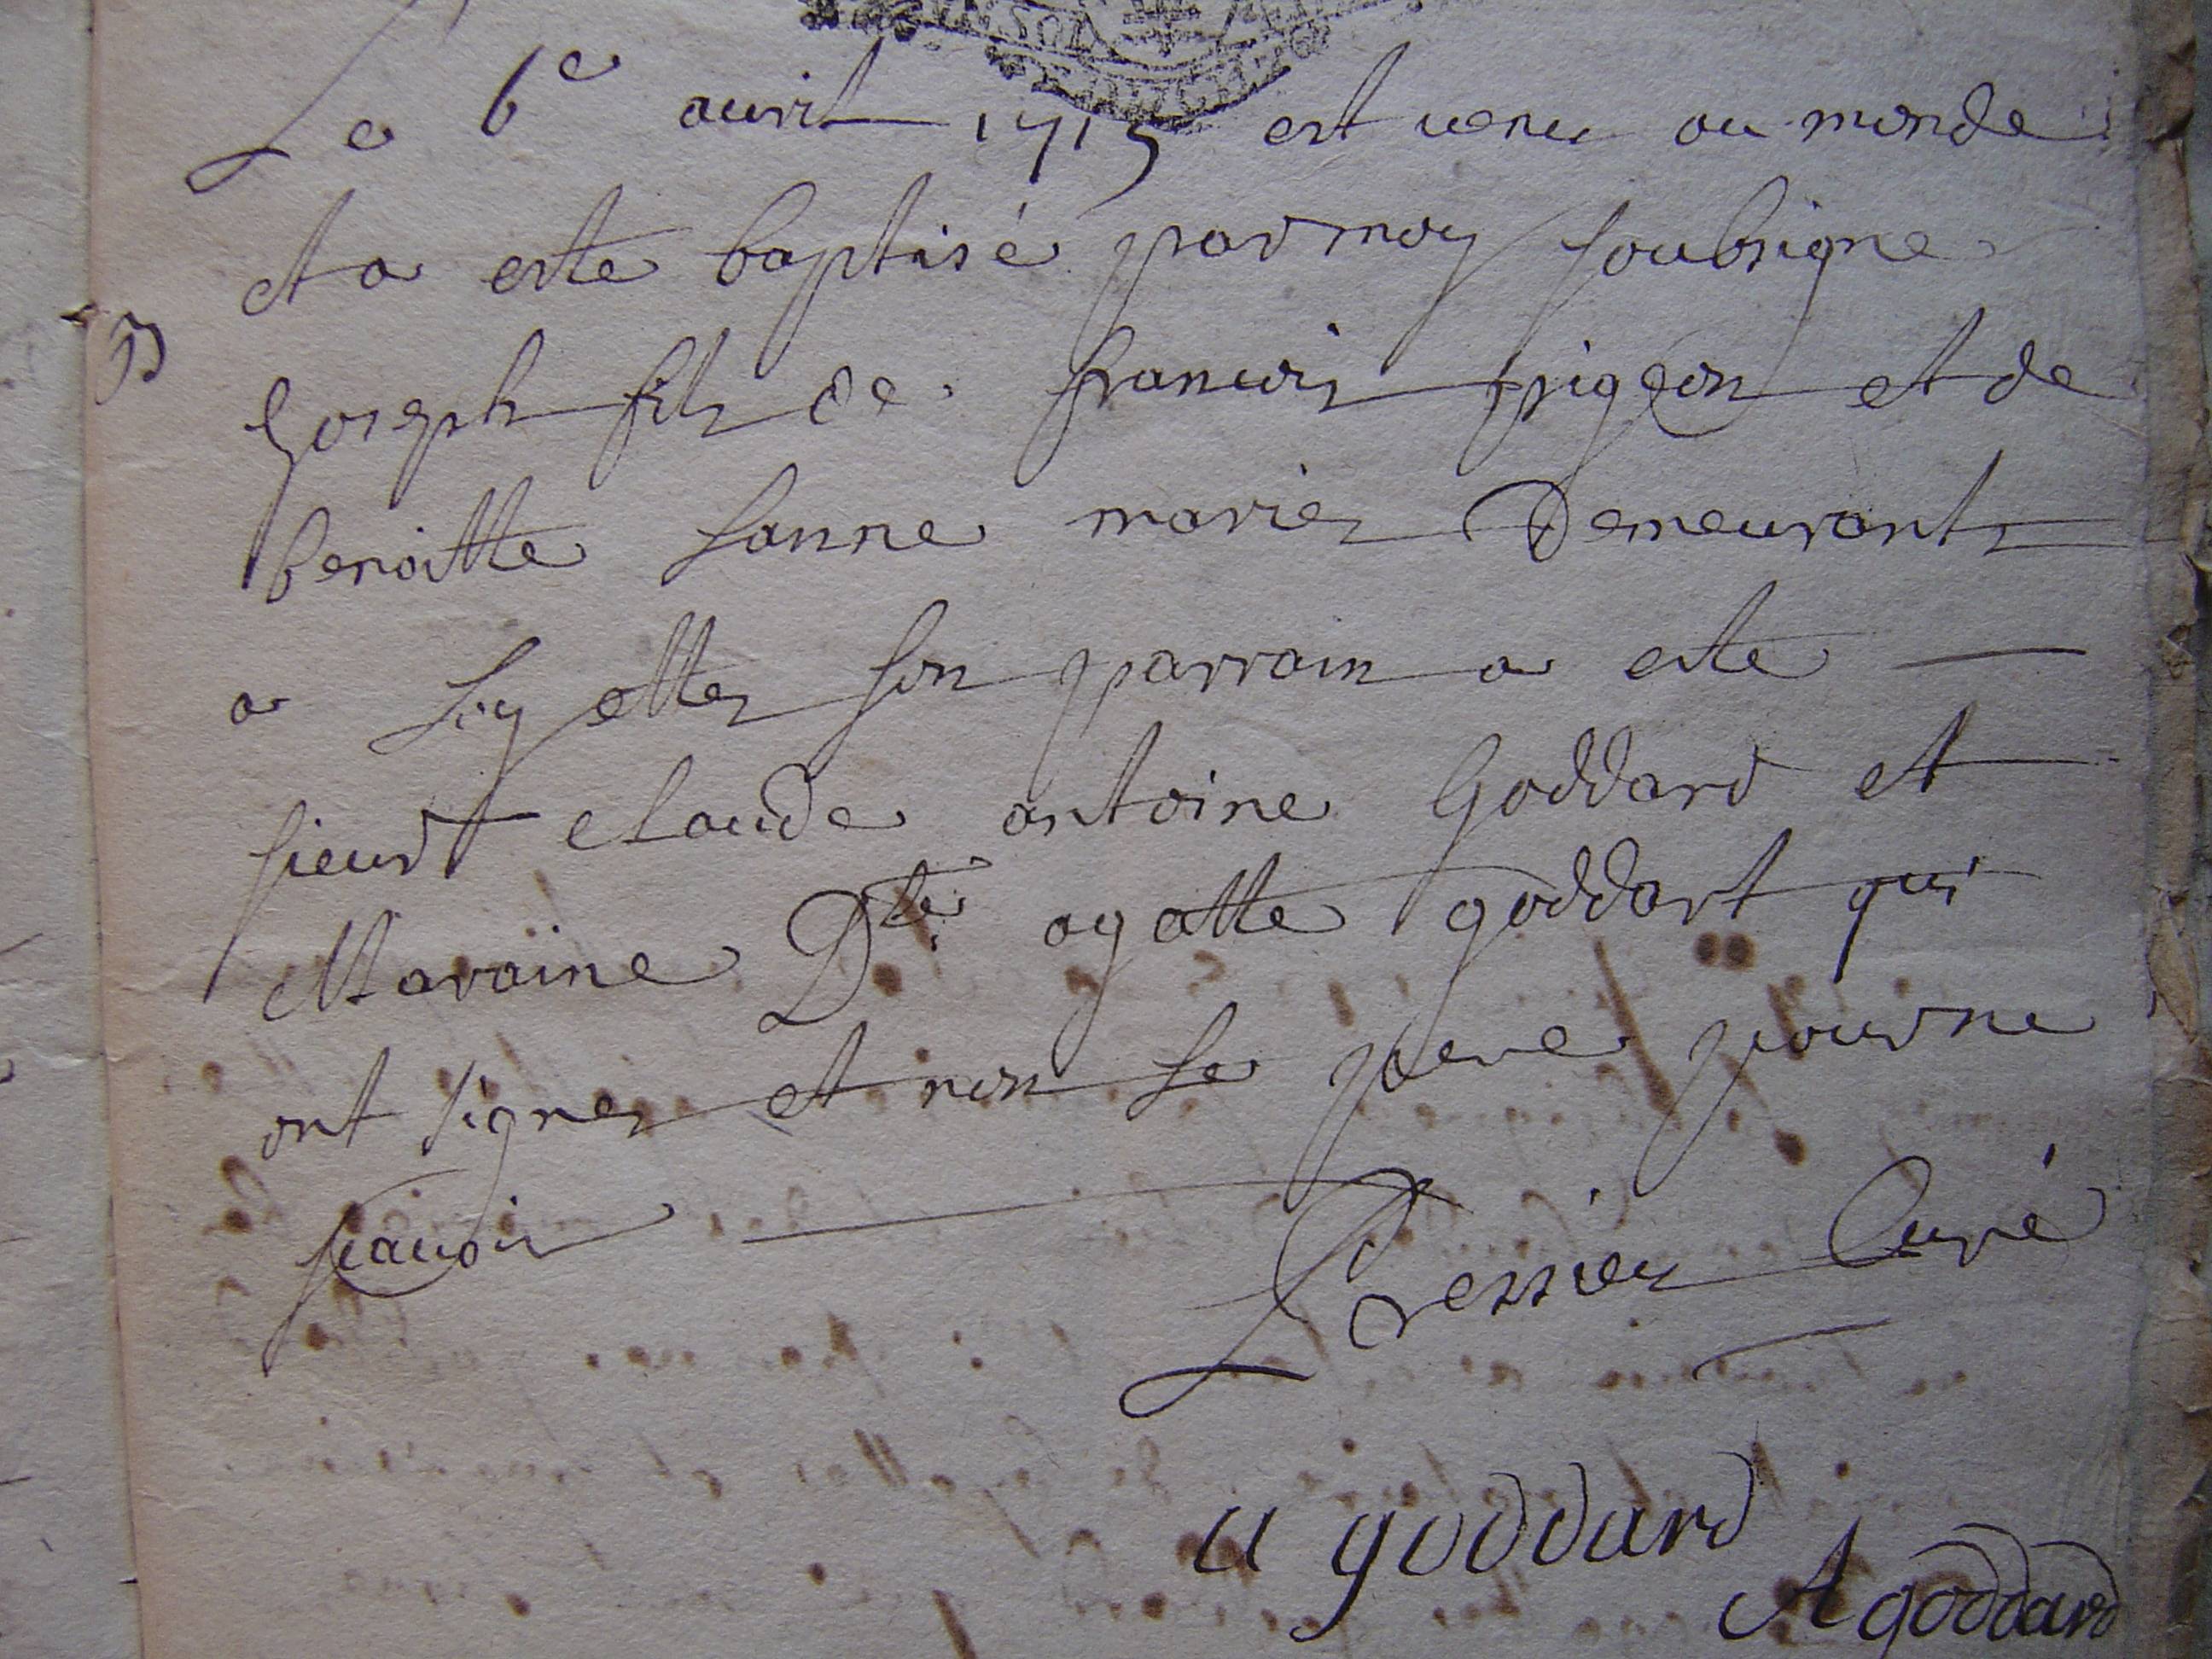 Le 6e avril 1715 est venu au monde
et a este baptisé par moy soubsigne
B
Joseph fils de francois pigeon et de
benoitte Lanne mariez Demeurants
a Ligettez son parrain a este
sieur claude antoine Goddard et
Maraine Dlle agatte goddart qui
ont signez et non le pere pour ne
scavoir
Tessier Curé
a goddard
A goddard